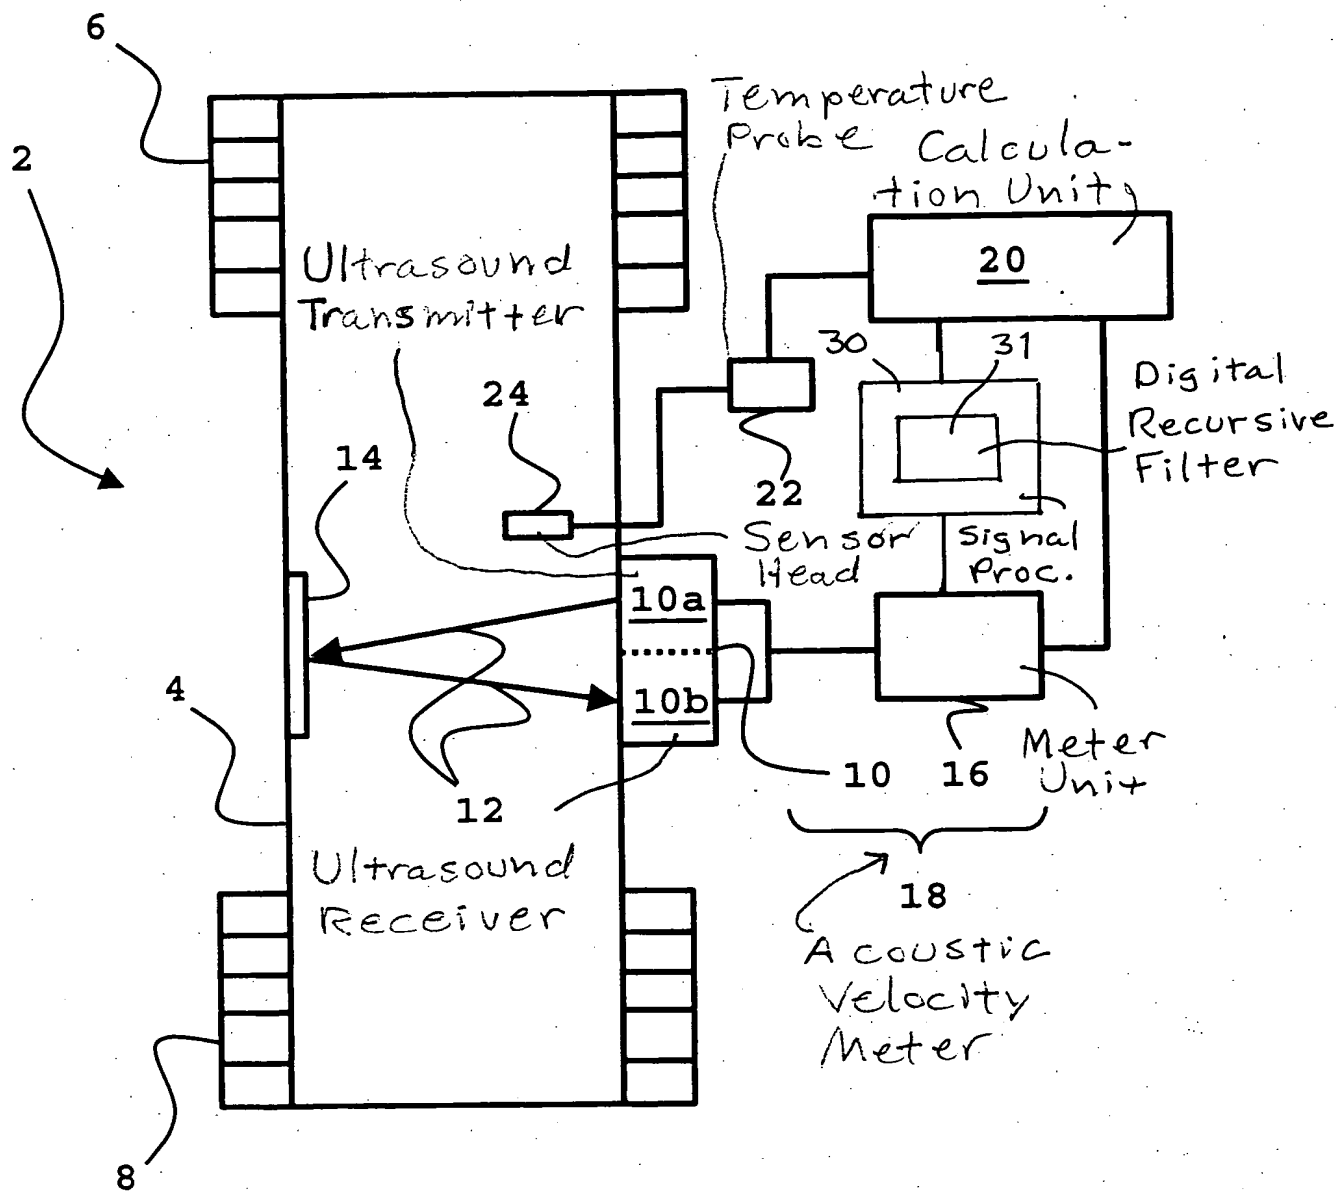 6
Temperature
Probe
2
Calcula-
tion Unit
Ultrasound
Transmitter
20
30
31
Digital
Recursive
Filter
24
14
22
Sensor
Head
Signal
Proc.
10a
4
10b
Meter
Unit
10
16
12
Ultrasound
Receiver
18
Acoustic
Velocity
Meter
8